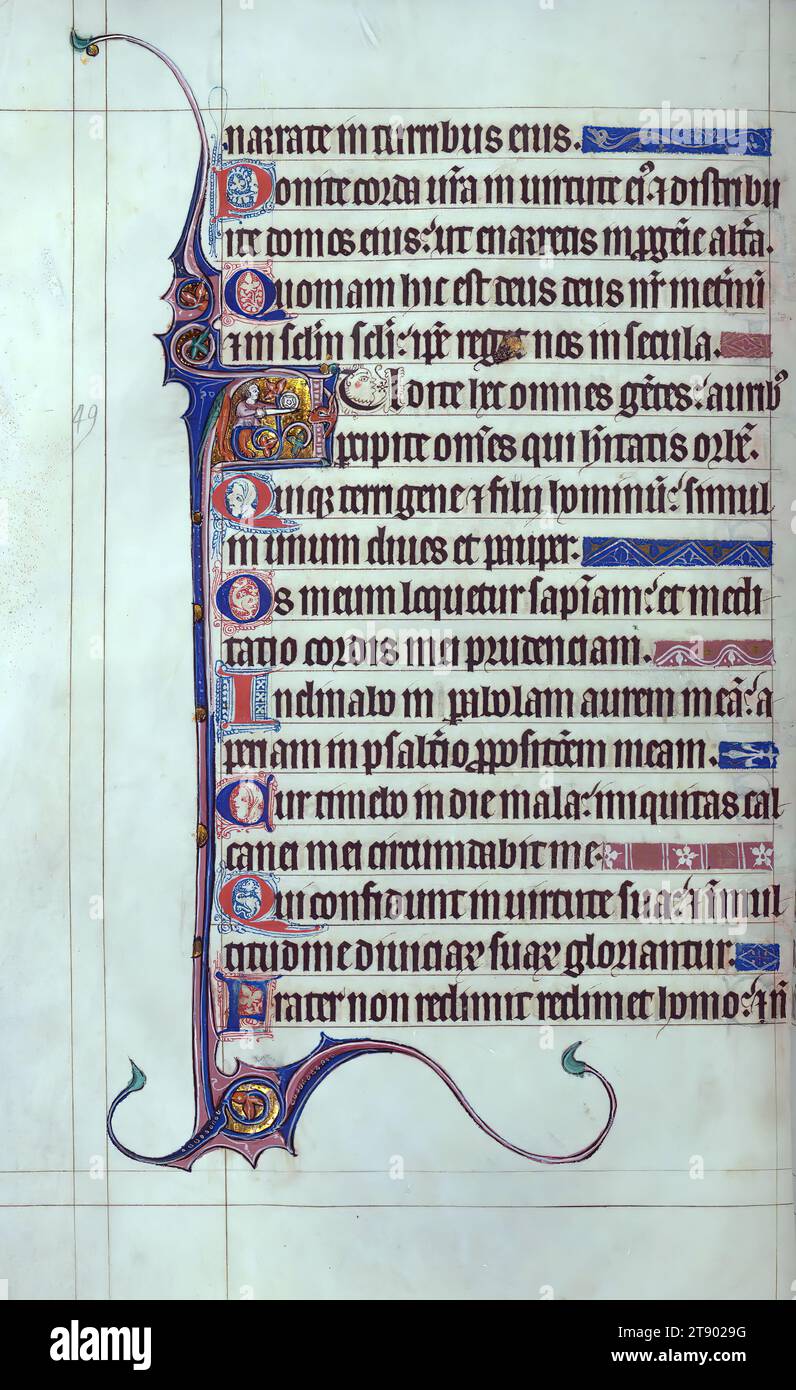 narrate in turribus eius.
Ponite corda ur̄a in uirtute ei᾽ ⁊ distribu
ite domos eius: ut enarretis in p̄geīe alt̄a.
Quoniam hic est deus deus nr̄ in et̄nū
⁊ in sc̄lm sc̄li: ip̄e reget nos in secula.
Audite hec omnes gētes: aurib᾽
percipite om̄es qui hītatis orbē.
Quiq; terrigene ⁊ filii hominū: simul
in unum diues et pauper.
Os meum loquetur sapīam: et medi
tatio cordis mei prudenciam.
Inclinabo in parabolam aurem meā: a
periam in psalt̄io p̄positōem meam.
Cur timebo in die mala: iniquitas cal
canei mei circumdabit me.
Qui confidunt in uirtute sua: ⁊ in mul
titudine diuiciaꝝ suaꝝ gloriantur.
Frater non redimit redimet homo: ⁊ n̄
49
alamy
a
alamy
Image ID: 2T9029G
www.alamy.com